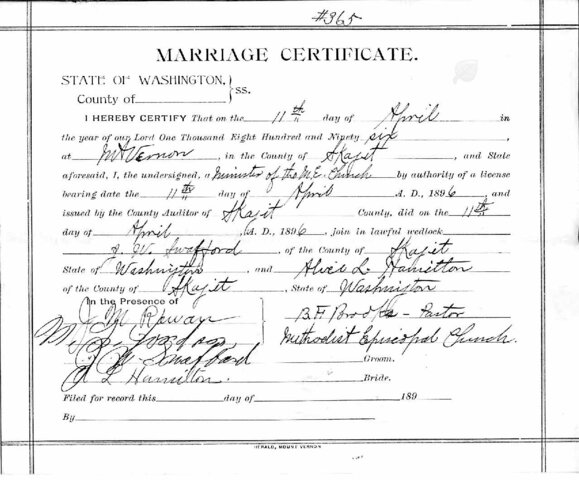 #365
MARRIAGE CERTIFICATE.
STATE OF WASHINGTON,
County of } ss.
I HEREBY CERTIFY That on the 11th day of April in
the year of our Lord One Thousand Eight Hundred and Ninety six,
at Mt Vernon, in the County of Skagit, and State
aforesaid, I, the undersigned, a Minister of the M.E. Church by authority of a license
bearing date the 11th day of April A. D., 1896, and
issued by the County Auditor of Skagit County, did on the 11th
day of April, A. D., 1896, join in lawful wedlock
W. Swafford of the County of Skagit
State of Washington, and Alice L. Hamilton
of the County of Skagit, State of Washington
In the Presence of
J M Rowan B F Brooks - Pastor
M. Methodist Episcopal Church.
W Swafford Groom.
L Hamilton. Bride.
Filed for record this day of 189
By
HERALD, MOUNT VERNON